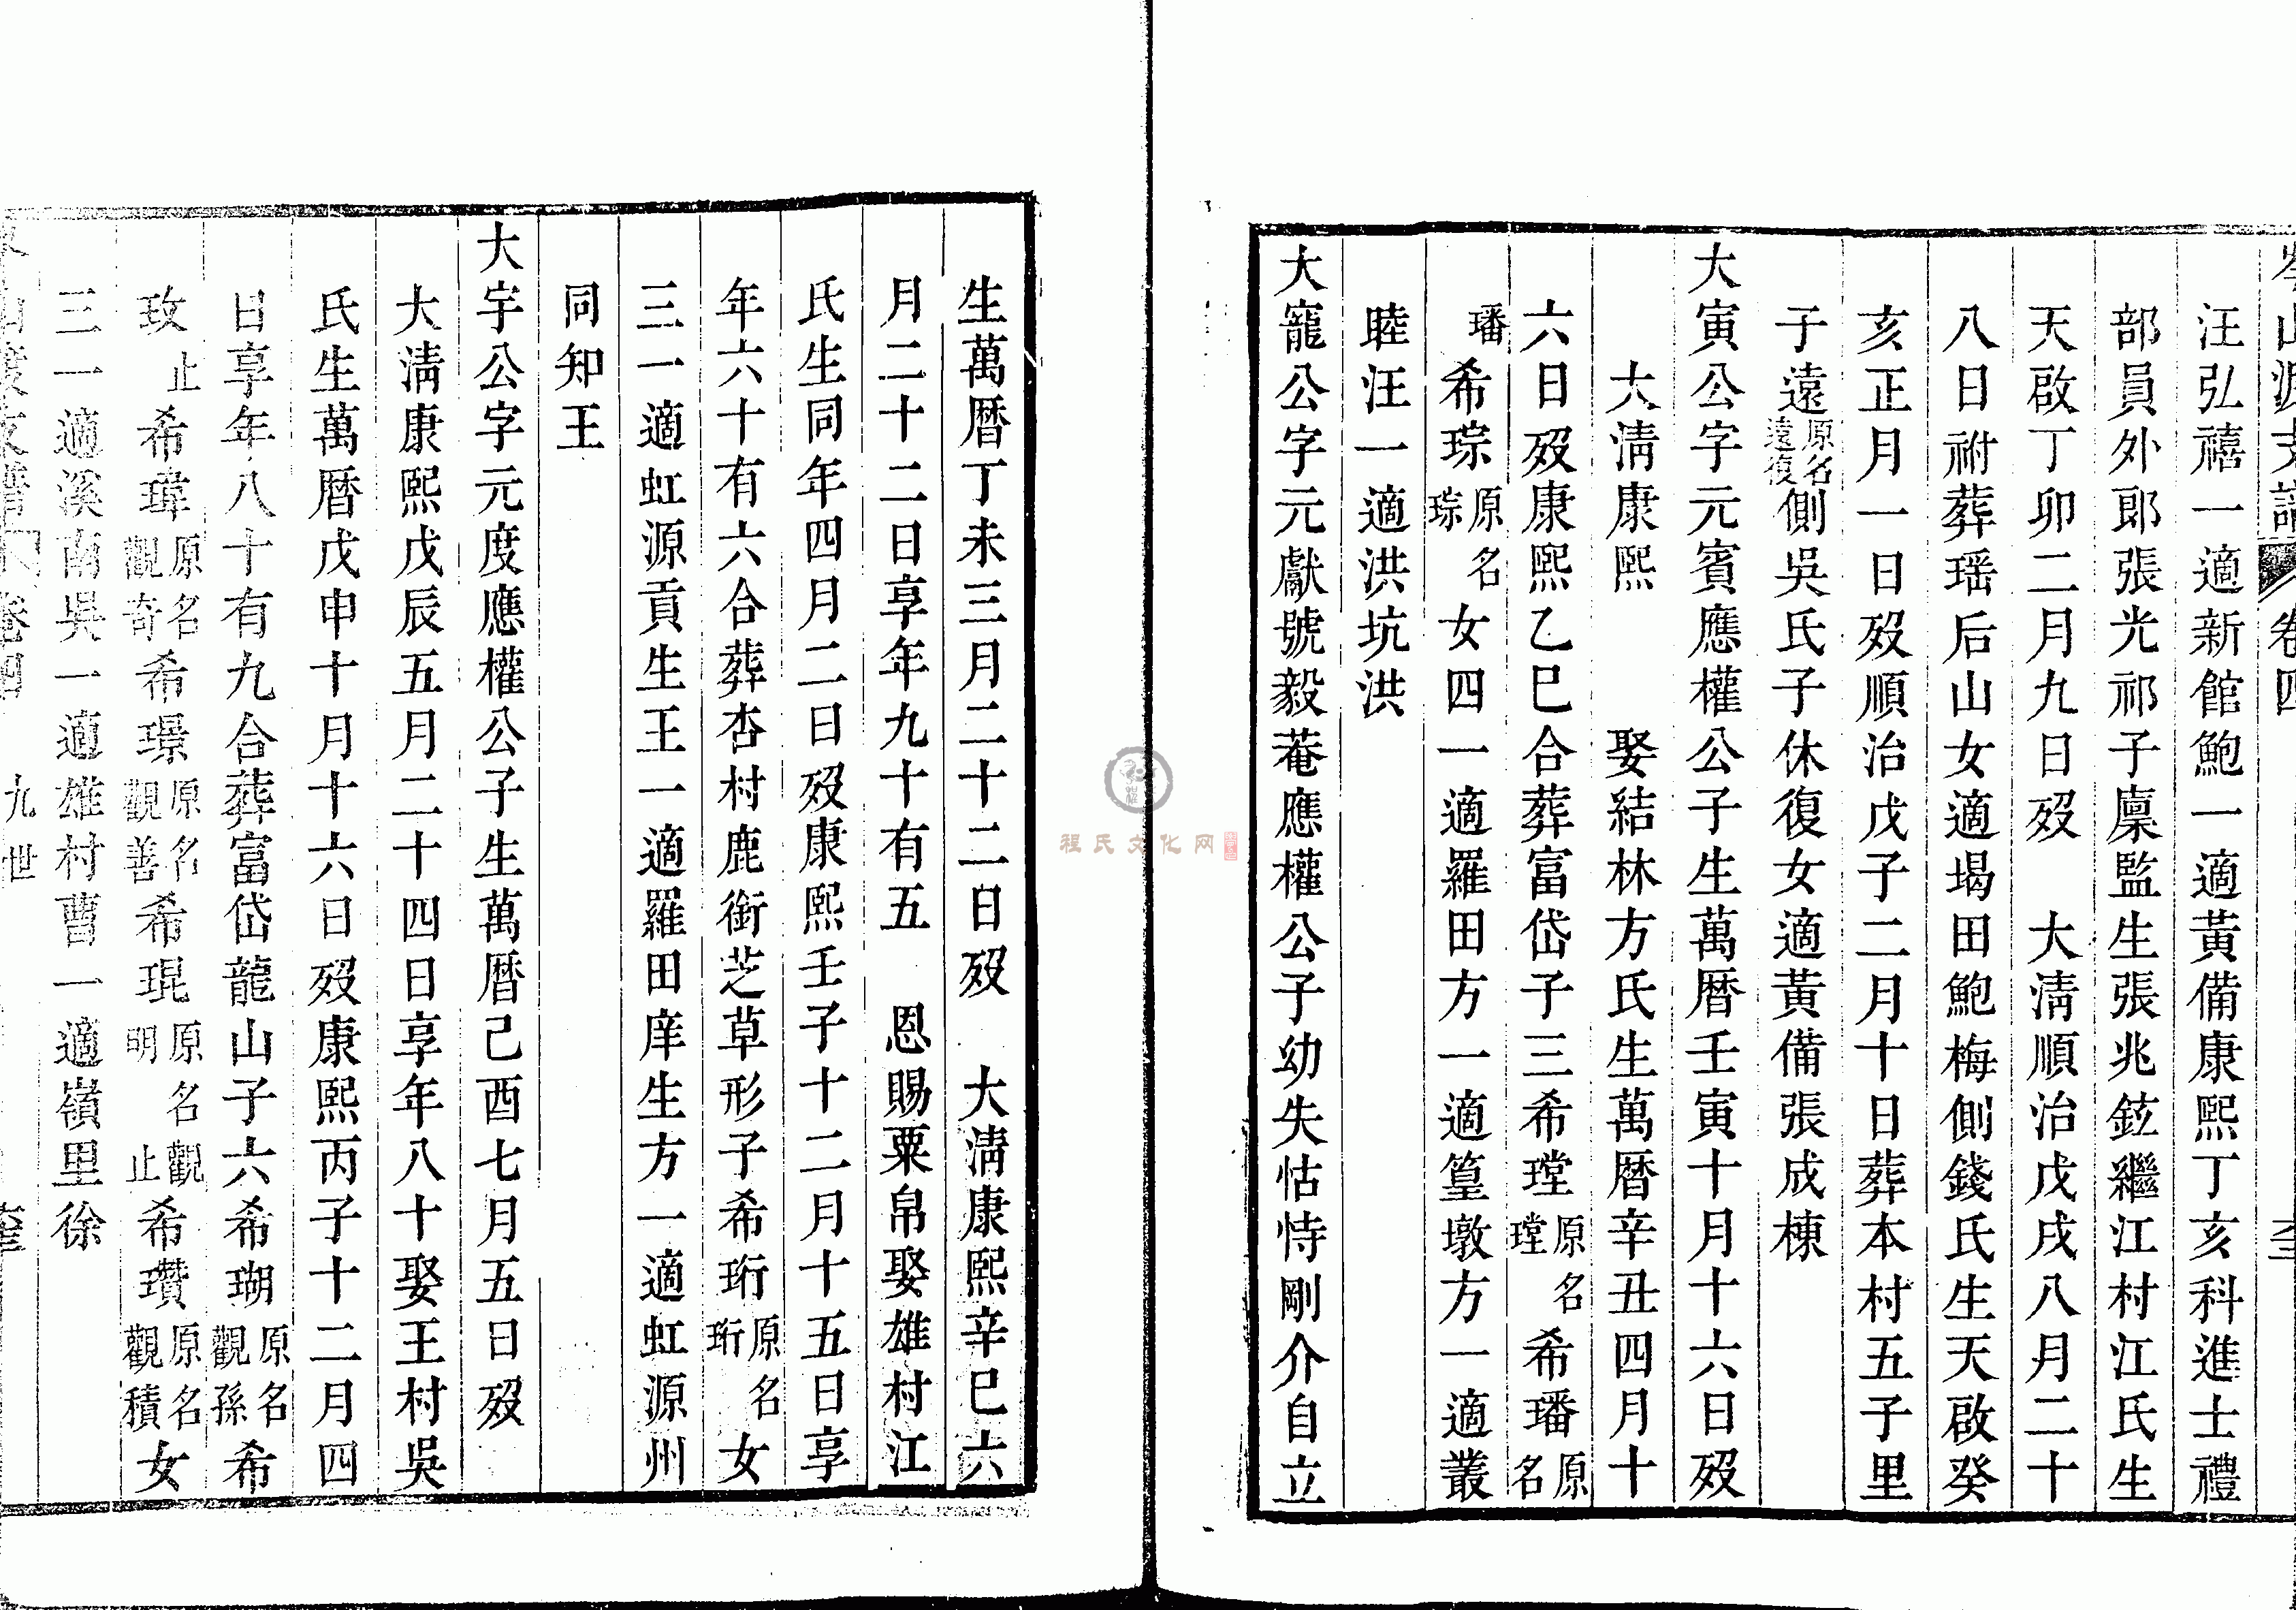 岑山源支譜 卷四
汪弘禧一適新館鮑一適黃備康熙丁亥科進士禮
部員外郎張光祁子廩監生張兆鉉繼江村江氏生
天啟丁卯二月九日歿 大淸順治戊戌八月二十
八日祔葬瑶后山女適堨田鮑梅側錢氏生天啟癸
亥正月一日歿順治戊子二月十日葬本村五子里
子遠原名遠復側吳氏子休復女適黃備張成棟
大寅公字元賓應權公子生萬曆壬寅十月十六日歿
大淸康熙 娶結林方氏生萬曆辛丑四月十
六日歿康熙乙巳合葬富岱子三希瑝原名瑝希璠原名
璠希琮原名琮女四一適羅田方一適篁墩方一適叢
睦汪一適洪坑洪
大寵公字元獻號毅菴應權公子幼失怙恃剛介自立
生萬曆丁未三月二十二日歿 大淸康熙辛巳六
月二十二日享年九十有五 恩賜粟帛娶雄村江
氏生同年四月二日歿康熙壬子十二月十五日享
年六十有六合葬杏村鹿銜芝草形子希珩原名珩女
三一適虹源貢生王一適羅田庠生方一適虹源州
同知王
大宇公字元度應權公子生萬曆己酉七月五日歿
大淸康熙戊辰五月二十四日享年八十娶王村吳
氏生萬曆戊申十月十六日歿康熙丙子十二月四
日享年八十有九合葬富岱龍山子六希瑚原名觀孫希
玫止希瑋原名觀奇希璟原名觀善希琨原名觀明止希瓚原名觀積女
三一適溪南吳一適雄村曹一適嶺里徐
卷四 九世
程氏文化网